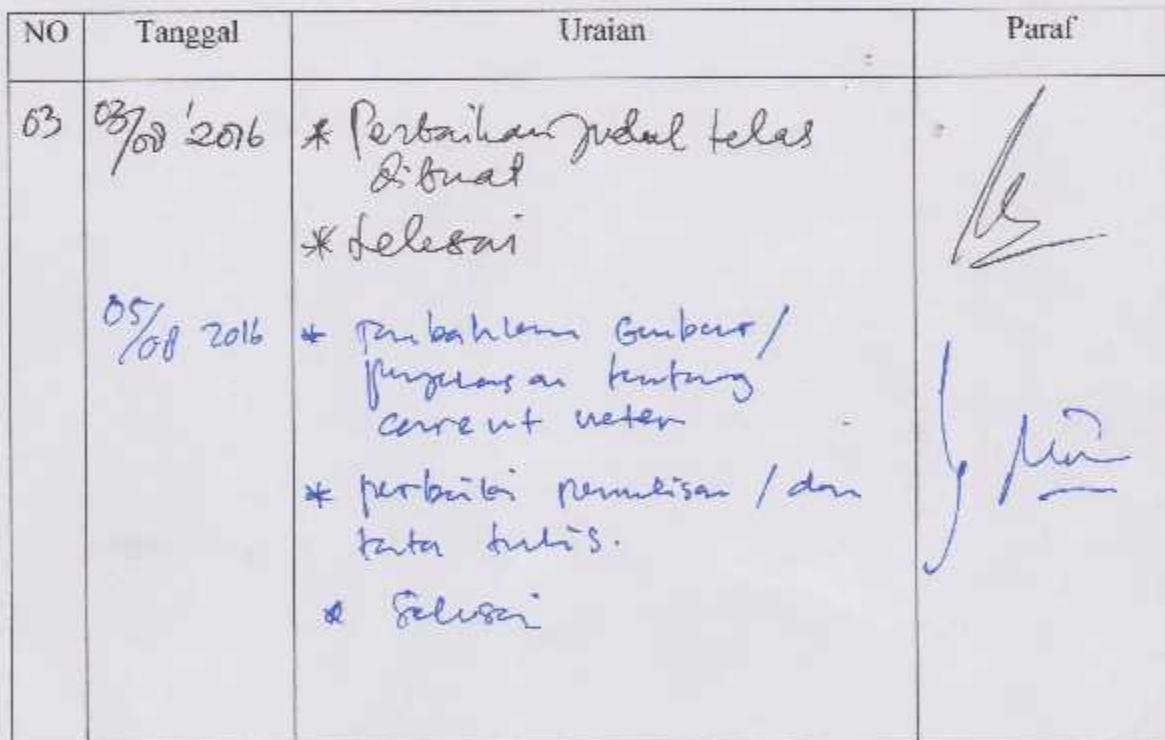 NO Tanggal Uraian Paraf
03 03/08 '2016 * Perbaikan judul telas
dibuat
* Selesai
05/08 2016 * Tambahkan Gambar /
penjelasan tentang
current meter
* perbaiki penulisan / dan
tata tulis.
* Selesai